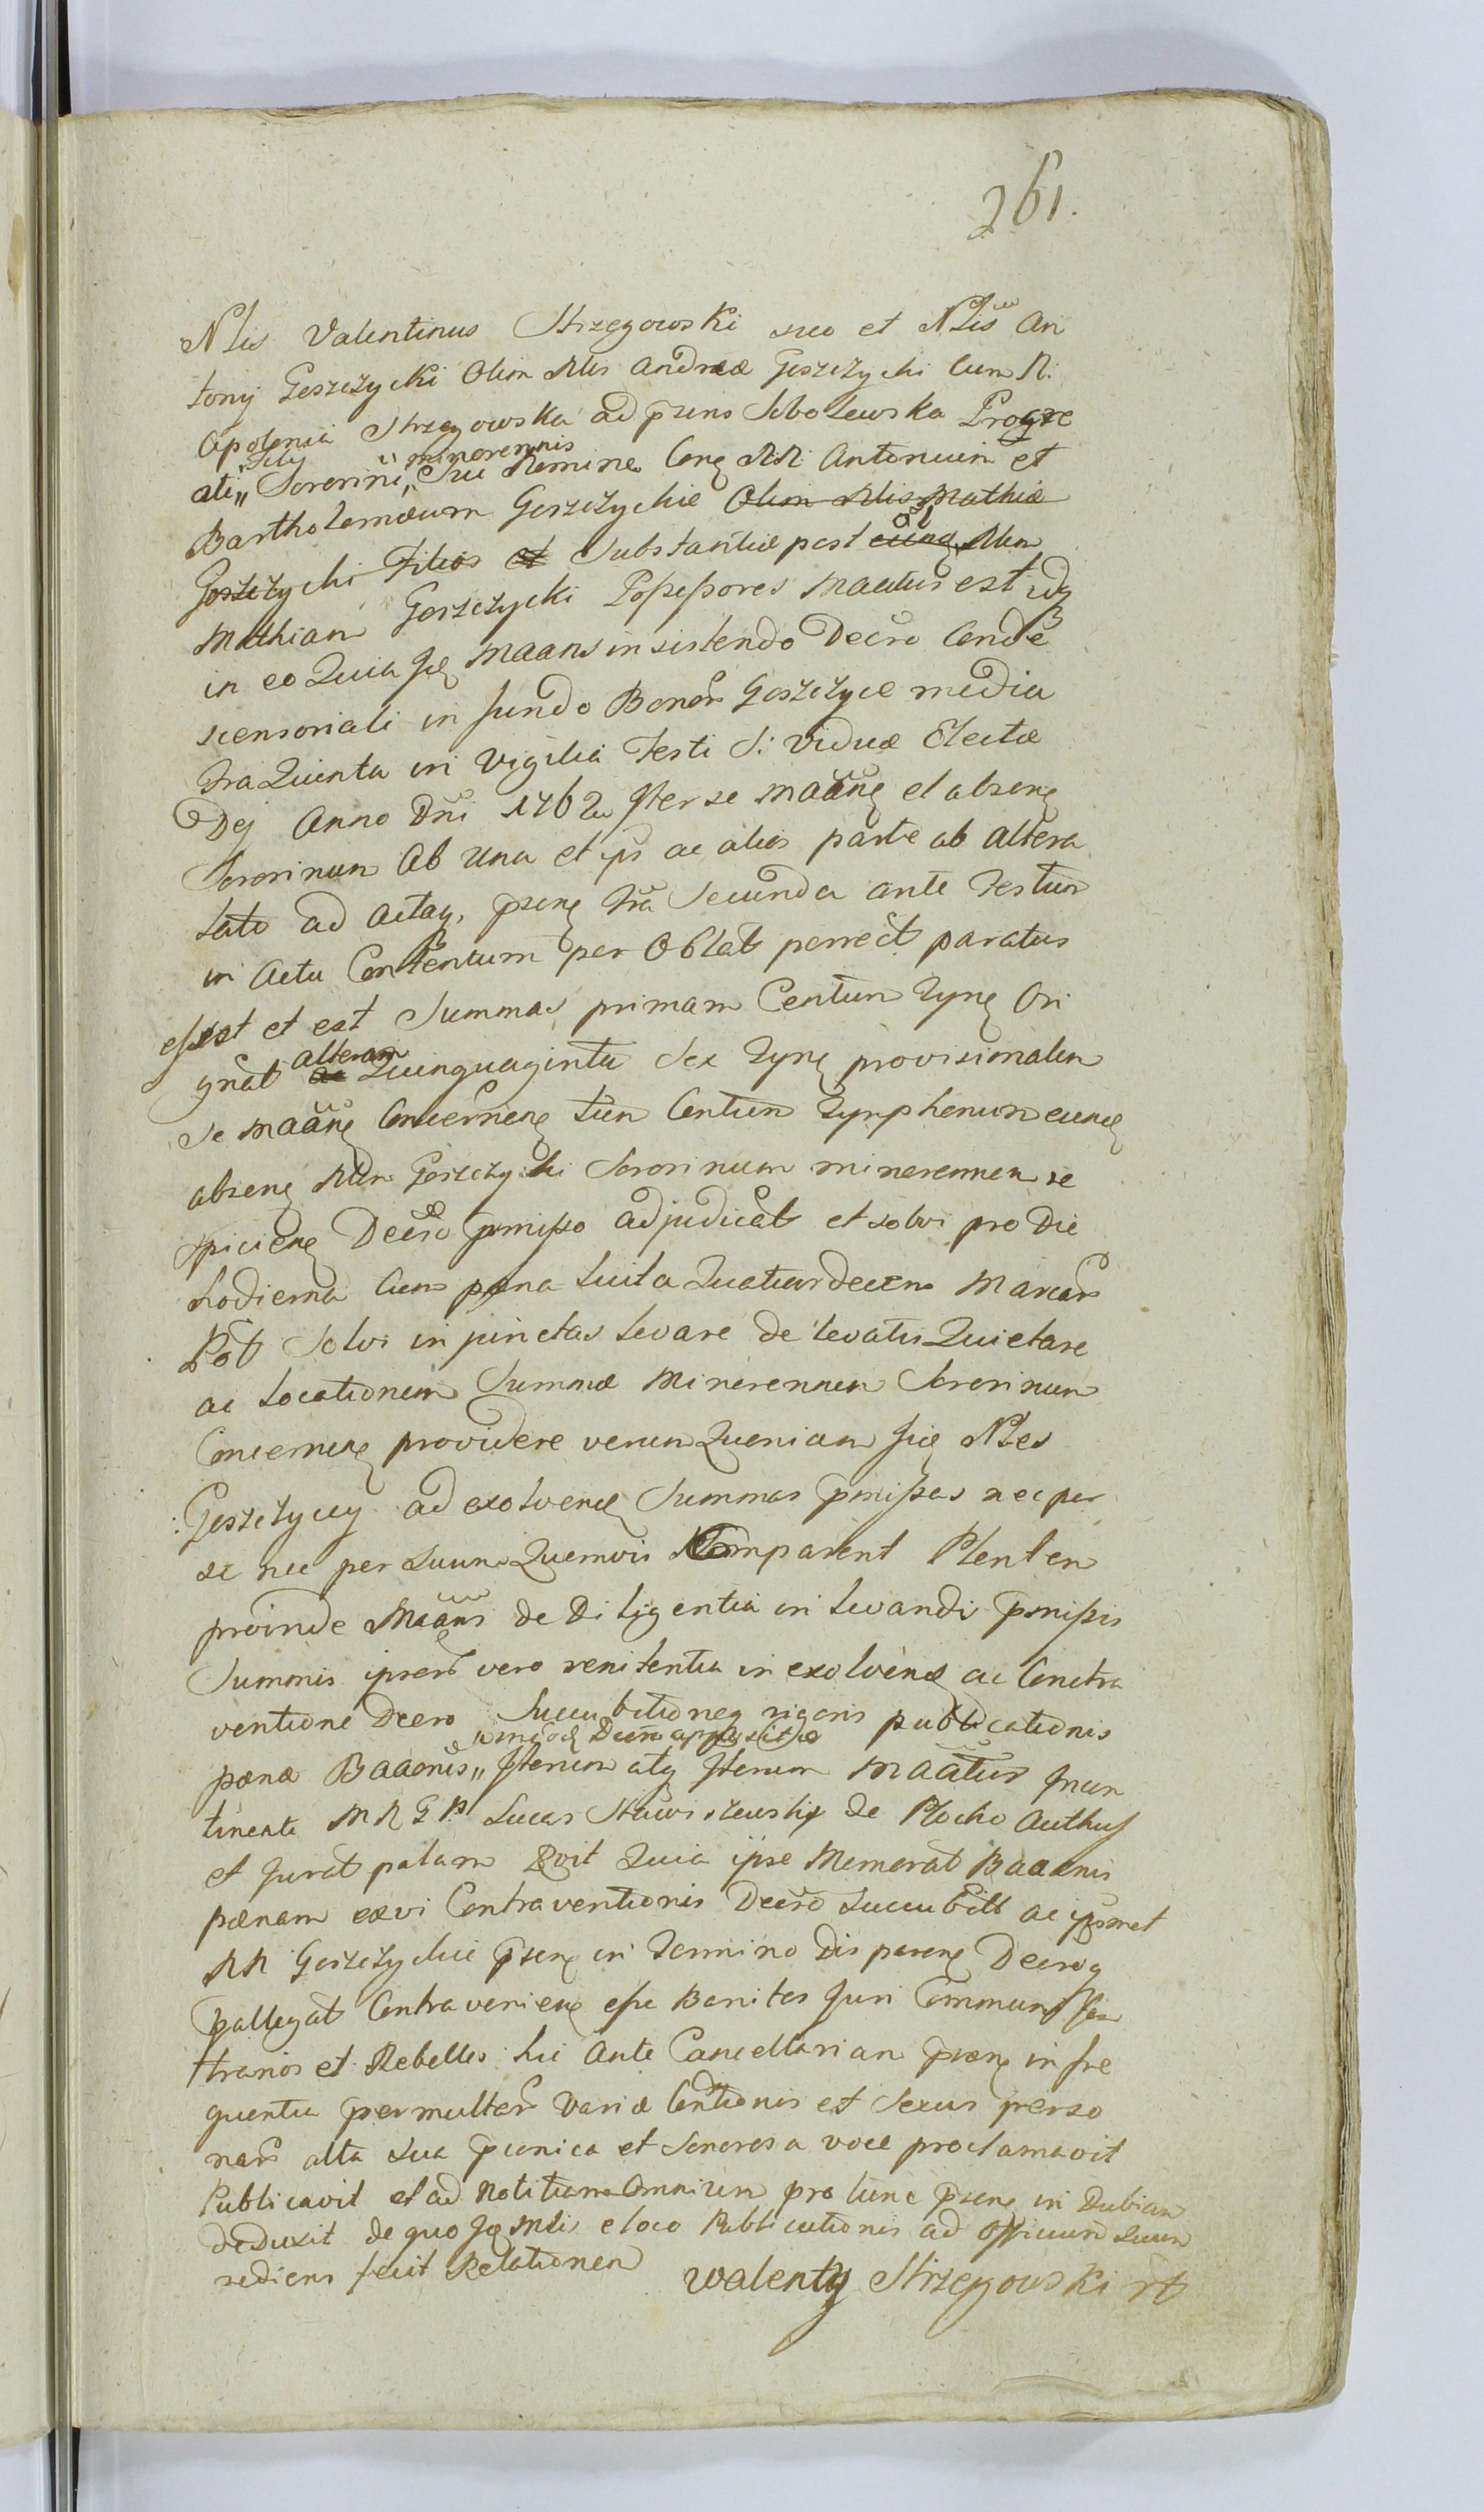 261.
Nlis Valentinus Strzegowski suo et Nlis An
tonij Goszczycki Olim Nlis Andreæ Goszczycki Cum N:
Apolonia Strzegowska ad prsens Sobolewska Progre
ati,, Filij Sororini,, minorennis Sui Nomine Cong NN Antonium et
Bartholomæum Goszczyckie Olim Nlis Mathiæ
Goszczycki Filios et Substantiæ post olim Nlem
Mathiam Goszczycki Possessores Maatus est idq
in eo Quia Ise Maans insistendo Decro Conde
scensoriali in fundo Bonor Goszczyce media
Fra Quinta in Vigilia Festi S: Viduæ Electæ
Dej Anno Dni 1762 Inter se Maane et absene
Sororinum Ab Una et ips ac alios parte ab altera
lato ad actaq, prsene Fra Secunda ante Festum
in Actu Contentum per Oblat porrect paratus
esset et est Summas primam Centum Zyne Ori
gnal alteram Quinquaginta Sex Zyne provisionalem
Se Maane Concernene tum Centum Zymphenum eunde
absene Nlem Goszczycki Sororinum minorennem re
spiciene Decro prmisso adjudicat et solvi pro Die
hodierna Cum pæna luita Quatuordecem Marcar
Pol Solvi injunctas levare de levatis Quietare
ac Locationem Summæ Minorennem Sororinum
Concernene providere verum Quoniam Ise Nles
Goszczyccy ad exolvene Summas prmissas nec per
se nec per Suum Quemvis Comparent Plenten
proinde Maans de Diligentia in levandis prmissis
Summis ipsor vero renitentia in exolvene ac Contra
ventione Decro Succubitioneq rigoris publicationis
pænæ Baaonis,, Iterum atq Iterum Maatus Incon
tinenti MNGP. Lucas de Plocko Authus
et Jurat palam Quia ipse Memorat Baaonis
pænam exvi Contraventionis Decro Succubitt ac ipsosmet
NN Goszczyckie prsene in Termino Disparene Decroq
prallegat Contraveniene esse Banitos Juri Communi
tranios et Rebelles hic Ante Cancellariam prsene in fre
quentia permultor Variæ Condtionis et Sexus perso
nar alta Sua prconica et Sonorosa voce proclamavit
Publicavit et ad Notitiam Omnium pro tunc prsene in Dubiam
deduxit de quo Ise Mli e loco Publicationis ad Officium Suum
rediens fecit Relationem Walenty Strzegowski